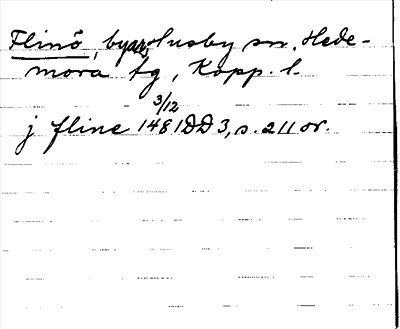 Flinö, by, Husby sn, Hede-
mora tg, Kopp. l.
3/12
j fline 1481 DD 3, s. 211 or.